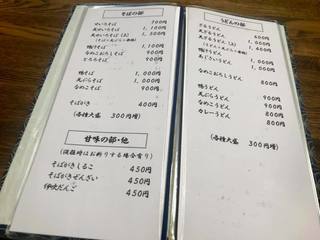 そばの部
せいろそば 700円
天せいろそば 1,500円
天せいろそば (上)
鴨せいろ 1,100円
なめこおろしそば 900円
とろろそば 900円
鴨そば 1,000円
天ぷらそば 1,000円
なめこそば 900円
そばがき 400円
(各種大盛 300円増)
甘味の部・他
(混雑時はお断りする場合有り)
そばがきしるこ 450円
そばがきぜんざい 450円
伊吹だんご 450円
うどんの部
ざるうどん 600円
天ざるうどん 1,400円
天ざるうどん (上)
鴨汁うどん 1,000円
なめこおろしうどん 800円
鴨うどん 900円
天ぷらうどん 900円
なめこうどん 800円
カレーうどん 800円
(各種大盛 300円増)